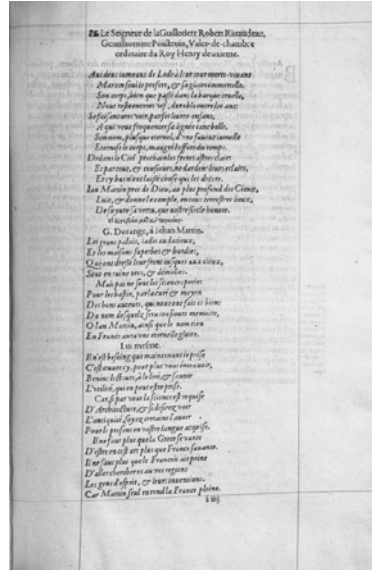 Le Seigneur de la Guillotiere Robert Rivaudeau,
Gentilhomme Poictevin, Valet-de-chambre
ordinaire du Roy Henry deuxieme.
Aux deus iumeaus de Lede à leur tour morts-vivans
Martin seul je prefere, & sa gloire immortelle.
Son corps, bien que passé dans la barque cruelle,
Nous reste encores vif, durable outre les ans:
Se faisant avec voir, par ses livres enfans,
A qui veus frequenter sa lignée tant belle,
Son nom, plus que eternel, d'une faveur
Eternise le corps, maugré l'effort du temps.
Dedans le Ciel
Et par tous, & tousiours, ne dardent leurs eclairs,
Et n'y bas n'ont
Ian Martin pres de Dieu, au plus profond des Cieux,
Luit, & donne exemple, en tous terrestres lieux,
De suyvre sa vertu, que nostre siecle honore.
G. Durange, à Iehan Martin.
Les grans palais, iadis audacieux,
Et les maisons superbes & hardies,
Qui ont dressé leur front iusques aux cieux,
Sont en ruine mises, & démolies.
Mais pas ne sont les sciences peries
Pour les bastir, par la cure & moyen
Des bons auteurs, qui nous ont fait ce bien:
Du nom desquelz sera tousiours memoire,
O Ian Martin, ainsi que le nom tien
En France aura son eternelle gloire.
Lui mesme.
Il n'est besoing que maintenant ie prise
C'est œuvre cy, pour plus vous emouvoir,
Benins lecteurs, à le lire, & savoir
L'utilité, qui en peut estre prise.
Car, si par vous la science est requise
D'Architecture, & si desirez voir
L'antiquité, soyez certains l'avoir
Pour le present en vostre langue acquise.
Il ne faut plus que la Grece se vante
D'estre en cest art plus que France savante.
Il ne faut plus que le Francois ait peine
D'aller chercher es autres regions
Les gens d'esprit, & leurs inventions.
Car Martin seul en rend la France pleine.
à iiij